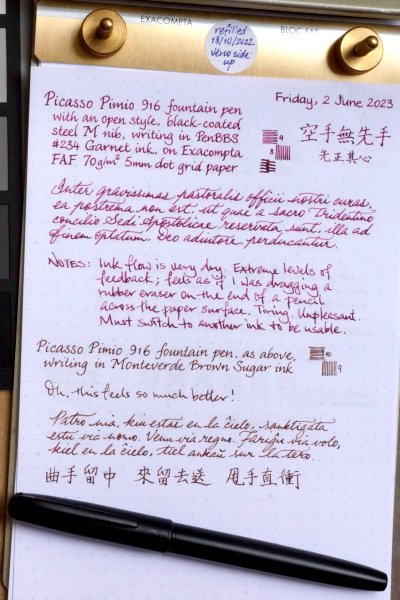 EXACOMPTA
BLOC FAF
refilled
18/10/2022
verso side
up
Picasso Pimio 916 fountain pen
with an open style, black-coated
steel M nib, writing in PenBBS
#234 Garnet ink, on Exacompta
FAF 70g/m² 5mm dot grid paper
Friday, 2 June 2023
9
8
空手無先手
先正其心
Inter gravissimas pastoralis officii nostri curas,
ea postrema non est, ut quae a sacro Tridentino
concilio Sedi Apostolicae reservata sunt, illa ad
finem optatum, Deo adiutore perducantur.
NOTES: Ink flow is very dry. Extreme levels of
feedback; feels as if I was dragging a
rubber eraser on the end of a pencil
across the paper surface. Tiring. Unpleasant.
Must switch to another ink to be usable.
Picasso Pimio 916 fountain pen, as above,
writing in Monteverde Brown Sugar ink
10
9
Oh, this feels so much better!
Patro nia, kiu estas en la ĉielo, sanktigata
estu via nomo. Venu via regno. Fariĝu via volo,
kiel en la ĉielo, tiel ankaŭ sur la tero.
曲手留中 來留去送 甩手直衝